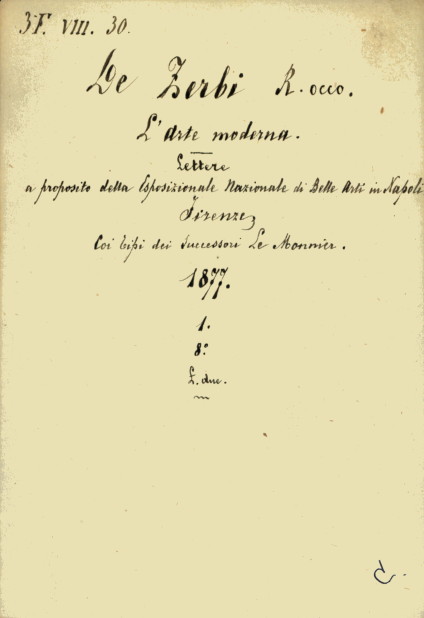 3F. VIII. 30.
De Zerbi R.occo.
L'arte moderna.
Lettere
a proposito della Esposizionale Nazionale di Belle Arti in Napoli
Firenze
Coi tipi dei Successori Le Monnier.
1877.
1.
8°
£. due.